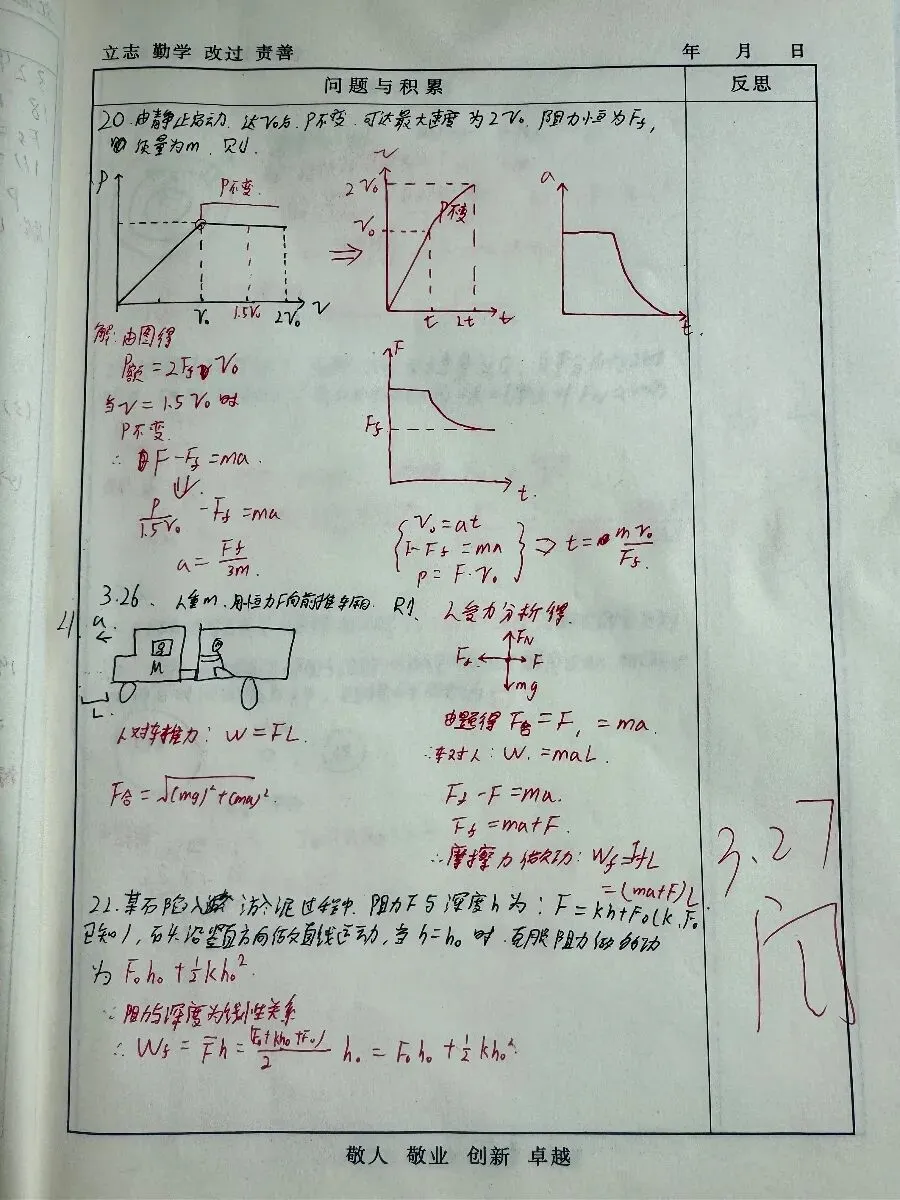 立志 勤学 改过 责善 年 月 日
问题与积累 反思
20. 由静止启动, 达v₀后, P不变, 可达最大速度为2v₀, 阻力恒为Ff,
质量为m, 则
P
P不变
v₀ 1.5v₀ 2v₀ v
⇒
v
2v₀
v₀
P不变
t 2t t
a
t
解: 由图得
P额 = 2Ff v₀
当v = 1.5v₀时
P不变
∴ F - Ff = ma
⇓
P/1.5v₀ - Ff = ma
a = Ff/3m
F
Ff
t
{ v₀ = at
F - Ff = ma
P = F·v₀ } ⇒ t = mv₀/Ff
3.26、 人重m, 用恒力F向前推车厢, 则
21.
a
←
M
L
人对车推力: W = FL
F合 = √(mg)²+(ma)²
人受力分析得
FN
Ff F
mg
由题得 F合 = F, = ma
∴车对人: W, = maL
Ff - F = ma
Ff = ma + F
∴摩擦力做功: Wf = FfL
= (ma+F)L
22. 某石陷入 淤泥过程中, 阻力F与深度h为: F = kh+F₀(k, F₀
已知), 石头沿竖直方向做直线运动, 当h=h₀时, 克服阻力做的功
为 F₀h₀ + ½kh₀²
∵ 阻力与深度为线性关系
∴ Wf = F̄h = (F₀+kh₀+F₀)/2 h₀ = F₀h₀ + ½kh₀²
3.27
敬人 敬业 创新 卓越